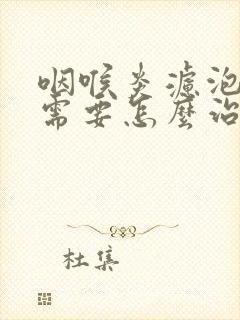 咽喉炎濾泡
需要怎麼治
杜集